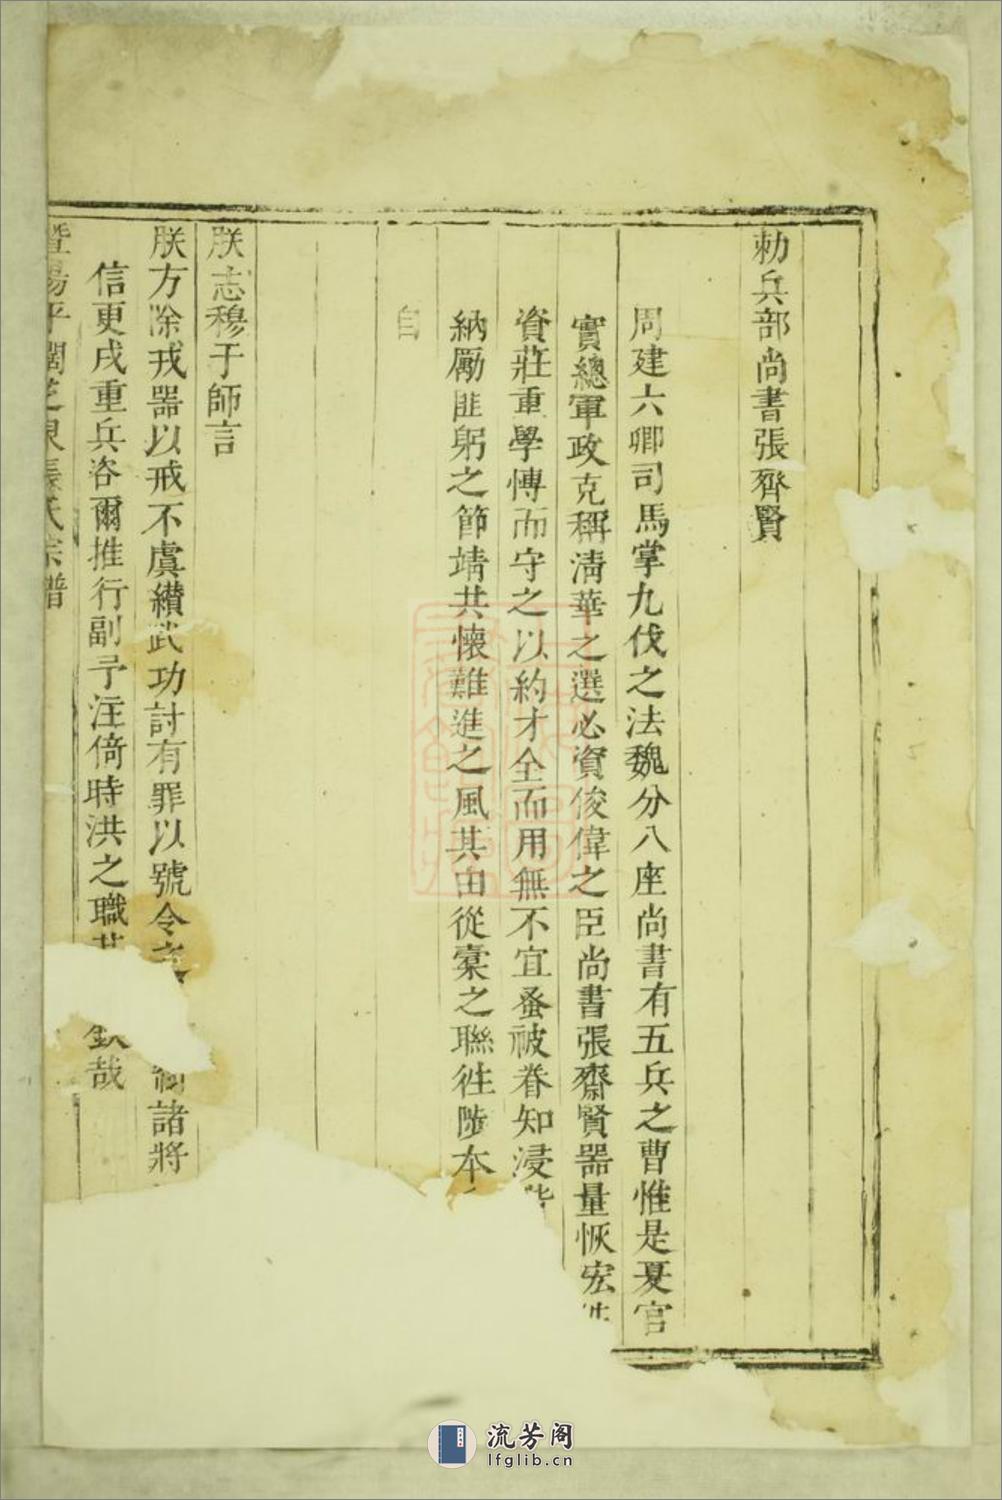 勅兵部尚書張齊賢
周建六卿司馬掌九伐之法魏分八座尚書有五兵之曹惟是夏官
實總軍政克稱清華之選必資俊偉之臣尚書張齋賢器量恢宏
資莊重學博而守之以約才全而用無不宜蚤被眷知浸
納厲匪躬之節靖共懷難進之風其由從橐之聯徃陟本
自
朕志穆于師言
朕方除戎器以戒不虞纘武功討有罪以號令 諸將
信更戌重兵咨爾推行副予注倚時洪之職 欽哉
暨陽平闊芝泉張氏宗譜
流芳阁
lfglib.cn